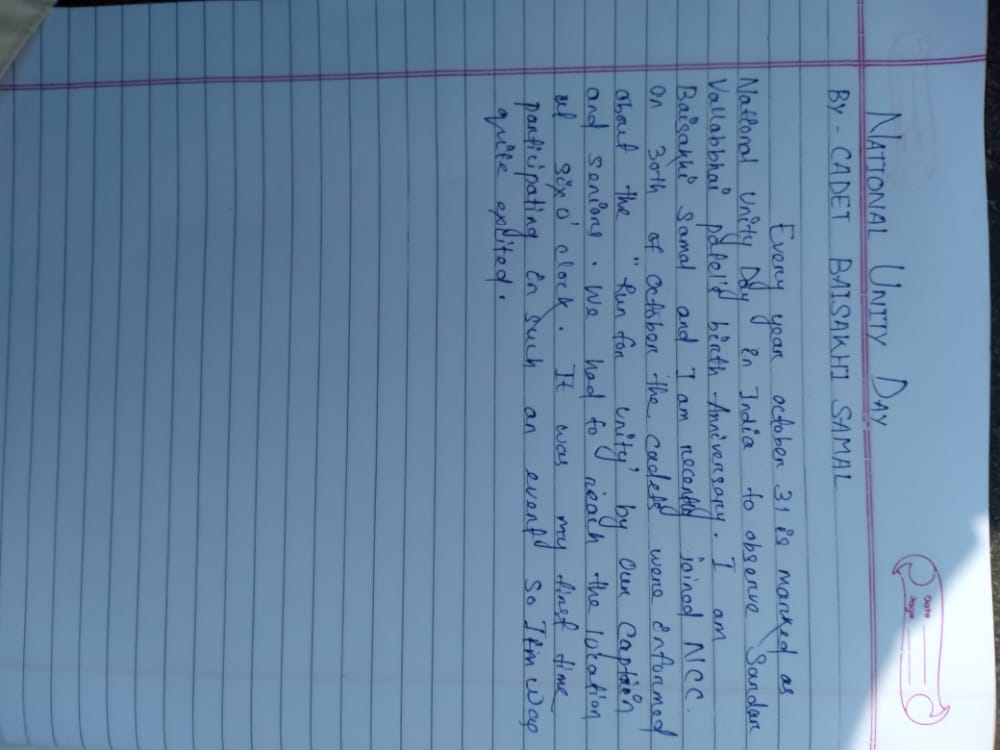 NATIONAL UNITY DAY
BY - CADET BAISAKHI SAMAL
Every year october 31 is marked as
National Unity Day in India to observe Sardar
Vallabbhai patel's birth Anniversary. I am
Baisakhi Samal and I am recently joined NCC.
On 30th of October the cadets were informed
about the "Run for unity' by our Captain
and seniors. We had to reach the location
at six o' clock. It was my first time
participating in such an event so I
quite exited.
Date
Page